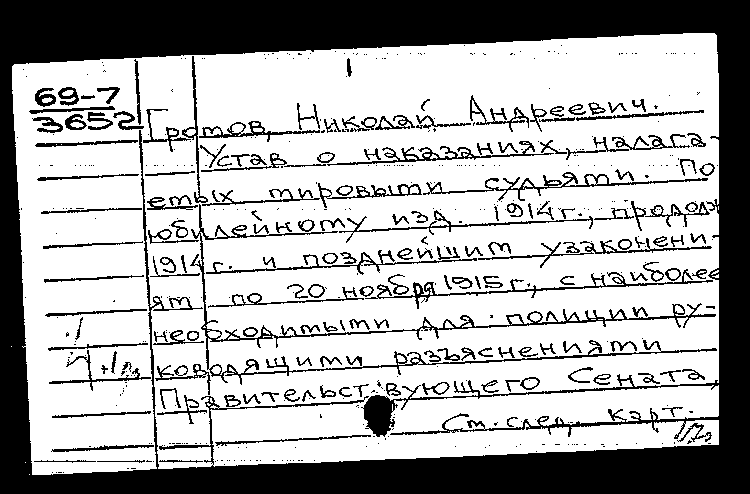 69-7
3652
Громов, Николай Андреевич.
Устав о наказаниях, налага-
емых мировыми судьями. По
юбилейному изд. 1914 г., продолж.
1914 г. и позднейшим узаконени-
ям по 20 ноября 1915 г., с наиболее
необходимыми для полиции ру-
ководящими разъяснениями
Правительствующего Сената,
См. след. карт.